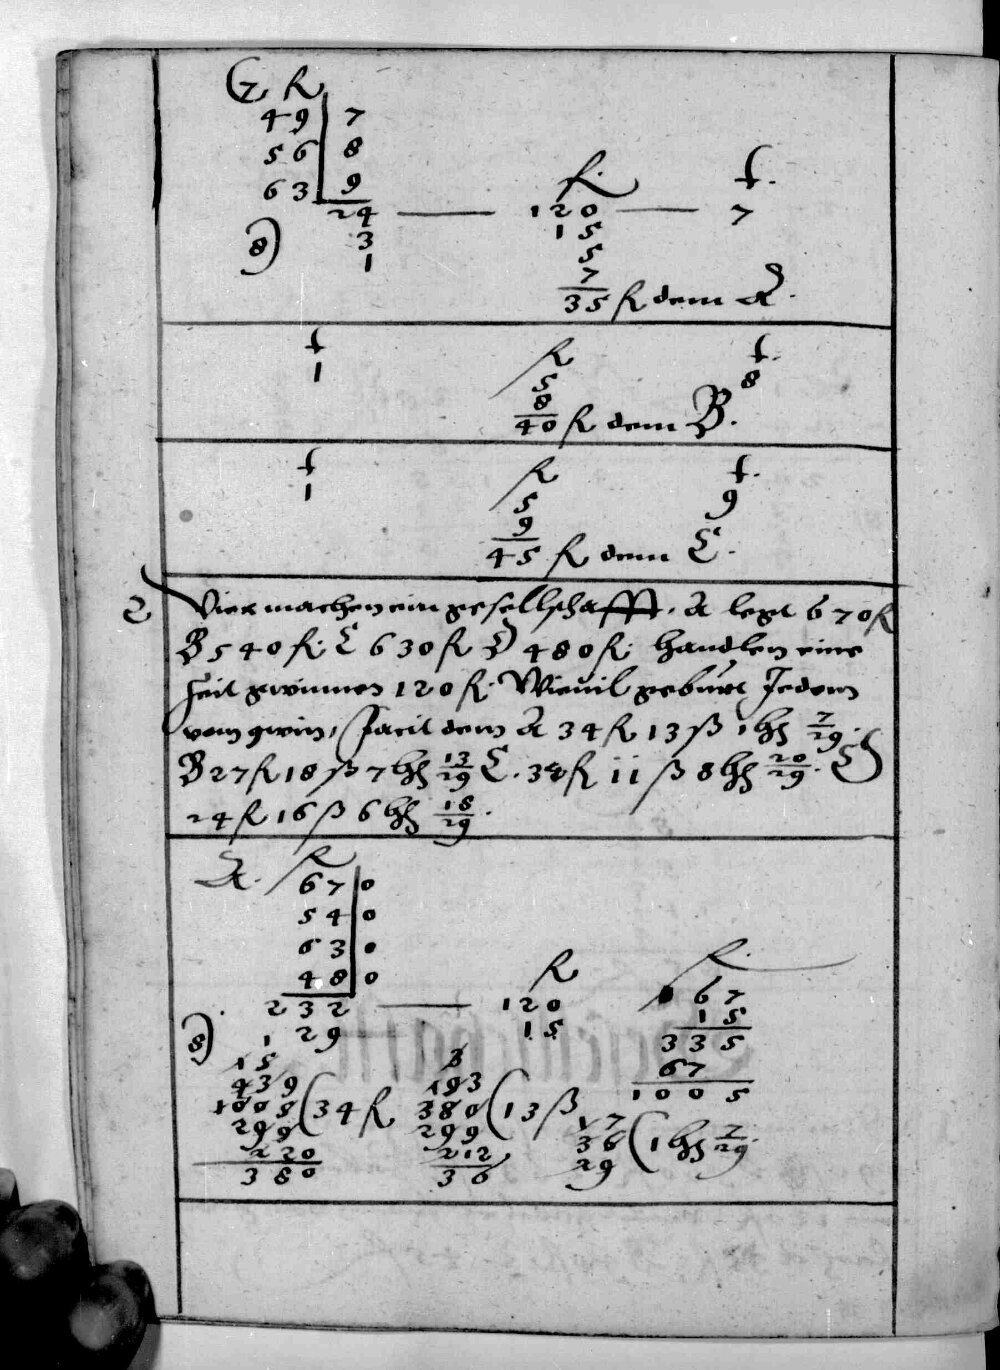 (7 fl
49 | 7
56 | 8
63 | 9
24 — 120 fl. — 7 t.
8) 3 15
1 5
7
35 fl dem A.
t fl t.
1 5 8
8
40 fl dem B.
t fl t.
1 5 9
9
45 fl dem C.
2 Vier machen ein geselschafft, A legt 670 fl
B 540 fl. C 630 fl D 480 fl. handlen eine
Zeit gewinnen 120 fl. Wievil gebürt Jedem
vom gwin, facit dem A 34 fl 13 ß 1 hlr 7/29.
B 27 fl 18 ß 7 hlr 13/29 C. 32 fl 11 ß 8 hlr 20/29. D
24 fl 16 ß 6 hlr 18/29.
A. fl
67 | 0
54 | 0
63 | 0
48 | 0
232 — 120 fl 67 fl.
8) 29 15 15
1 335
67
1005
15
439
1005 (34 fl
299
220
380
3
193
380 (13 ß
299
212
36
17
36 (1 hlr 7/29.
29